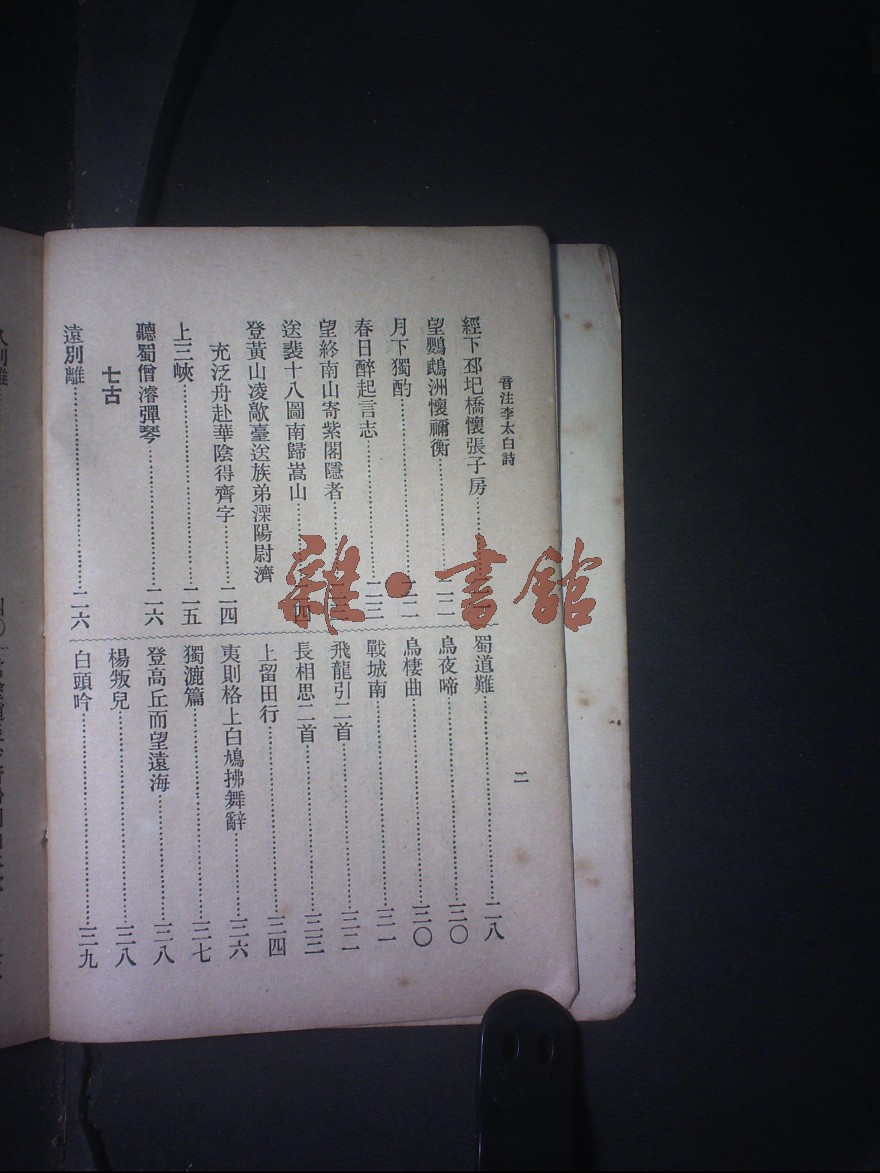 音注李太白詩
二
經下邳圯橋懷張子房
望鸚鵡洲懷禰衡
月下獨酌……二二
春日醉起言志……二三
望終南山寄紫閣隱者
送裴十八圖南歸嵩山……二四
登黃山凌歊臺送族弟溧陽尉濟
充泛舟赴華陰得齊字……二四
上三峽……二五
聽蜀僧濬彈琴……二六
七古
遠別離……二六
蜀道難……二八
烏夜啼……三〇
烏棲曲……三〇
戰城南……三一
飛龍引二首……三二
長相思二首……三三
上留田行……三四
夷則格上白鳩拂舞辭……三六
獨漉篇……三七
登高丘而望遠海……三八
楊叛兒……三八
白頭吟……三九
雜·書館